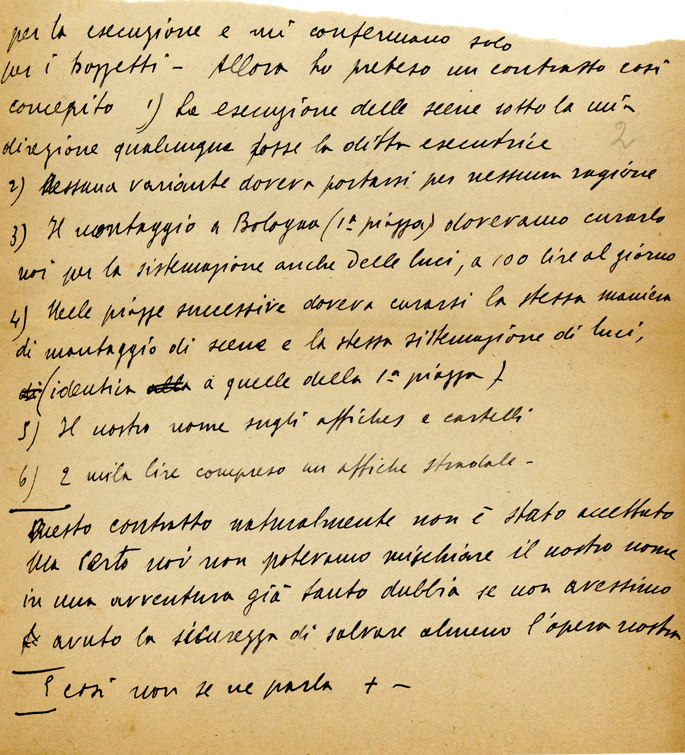 per la esecuzione e mi confermano solo
per i bozzetti - Allora ho preteso un contratto così
concepito 1) La esecuzione delle scene sotto la mia
direzione qualunque fosse la ditta esecutrice
2
2) Nessuna variante doveva portarsi per nessuna ragione
3) Il montaggio a Bologna (1ª piazza) dovevamo curarlo
noi per la sistemazione anche delle luci, a 100 lire al giorno
4) Nelle piazze successive doveva curarsi la stessa maniera
di montaggio di scene e la stessa sistemazione di luci,
(identica a quelle della 1ª piazza)
5) Il nostro nome sugli affiches e cartelli
6) 2 mila lire compreso un affiche stradale -
Questo contratto naturalmente non è stato accettato
Ma certo noi non potevamo mischiare il nostro nome
in una avventura già tanto dubbia se non avessimo
avuto la sicurezza di salvare almeno l'opera nostra
E così non se ne parla + -